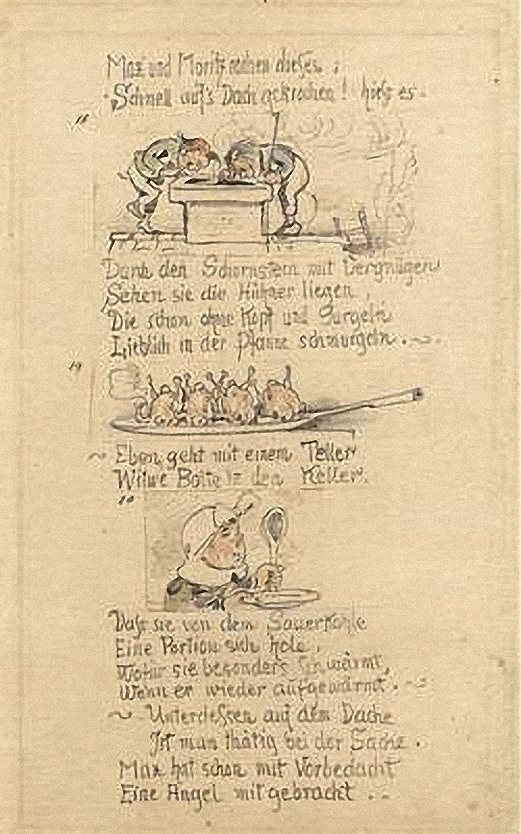 Max und Moritz rochen dieses;
Schnell auf's Dach gekrochen! hieß es.
18
Durch den Schornstein mit Vergnügen
Sehen sie die Hühner liegen,
Die schon ohne Kopf und Gurgeln
Lieblich in der Pfanne schmurgeln.
19
Eben geht mit einem Teller
Witwe Bolte in den Keller,
20
Daß sie von dem Sauerkohle
Eine Portion sich hole,
Wofür sie besonders schwärmt,
Wenn er wieder aufgewärmt.
Unterdessen auf dem Dache
Ist man thätig bei der Sache.
Max hat schon mit Vorbedacht
Eine Angel mitgebracht.